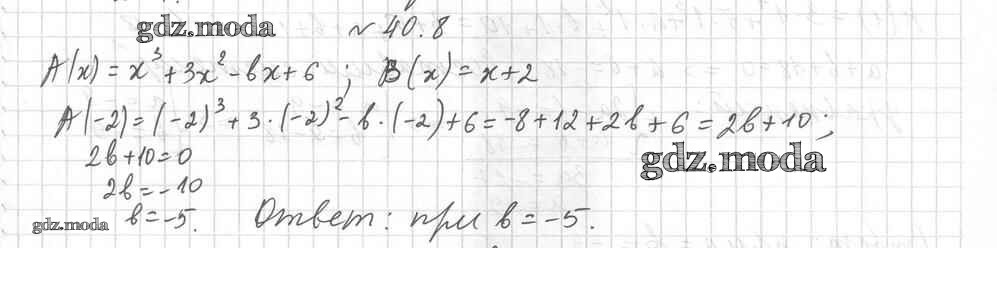 gdz.moda
№ 40.8
A(x) = x³ + 3x² - bx + 6 ; B(x) = x + 2
A(-2) = (-2)³ + 3 · (-2)² - b · (-2) + 6 = -8 + 12 + 2b + 6 = 2b + 10 ;
2b + 10 = 0
gdz.moda
2b = -10
b = -5.
Ответ: при b = -5.
gdz.moda